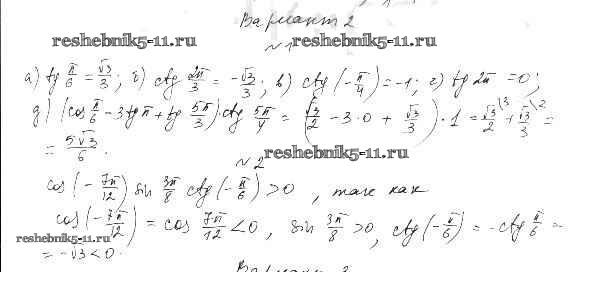 Вариант 2
reshebnik5-11.ru
№1
а) tg π/6 = √3/3; б) ctg 2π/3 = -√3/3; в) ctg(-π/4) = -1; г) tg 2π = 0;
д) (cos π/6 - 3tg π + tg 5π/3)·ctg 5π/4 = (√3/2 - 3·0 + √3/3)·1 = √3/2 \3 + √3/3 \2 =
= 5√3/6.
№2
reshebnik5-11.ru
cos(-7π/12) sin 3π/8 ctg(-π/6) > 0, так как
cos(-7π/12) = cos 7π/12 < 0, sin 3π/8 > 0, ctg(-π/6) = -ctg π/6 =
reshebnik5-11.ru
= -√3 < 0.